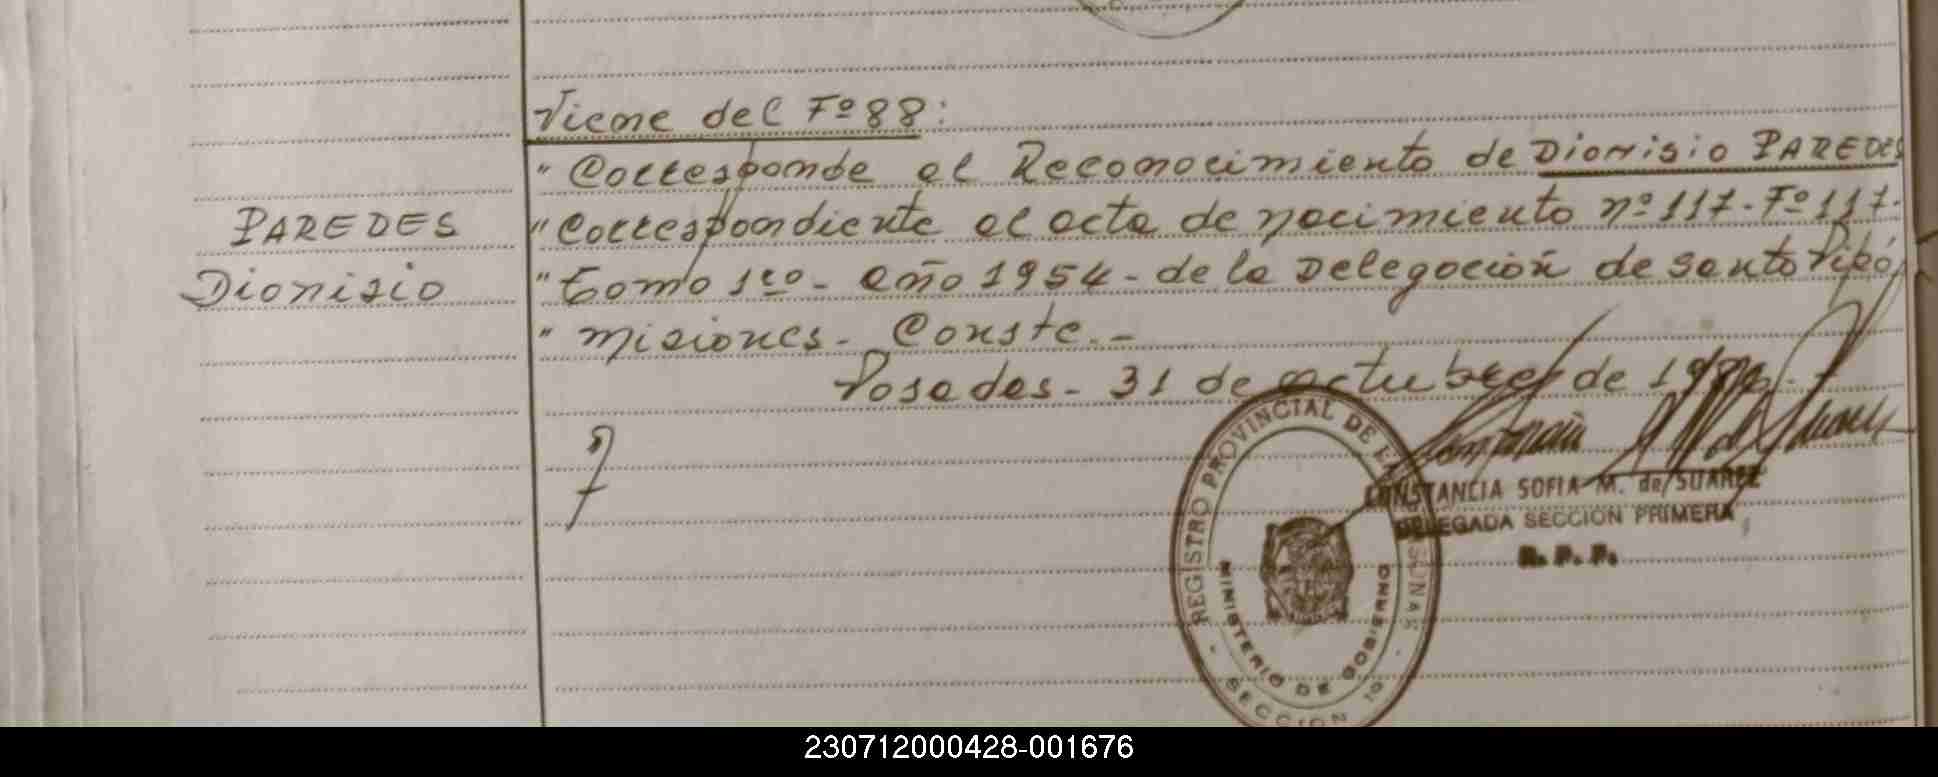 Viene del Fº 88:
"Corresponde al Reconocimiento de Dionisio PAREDES
PAREDES
Dionisio
"Correspondiente al acta de nacimiento nº 117-Fº 117-
"tomo 1ro- año 1954- de la Delegación de Santo Pipó,
" Misiones- Conste.-
Posadas- 31 de octubre de
REGISTRO PROVINCIAL DE
MINISTERIO DE GOBIERNO
SECCION
CONSTANCIA SOFIA M. de SUAREZ
DELEGADA SECCION PRIMERA
R. P. P.
230712000428-001676